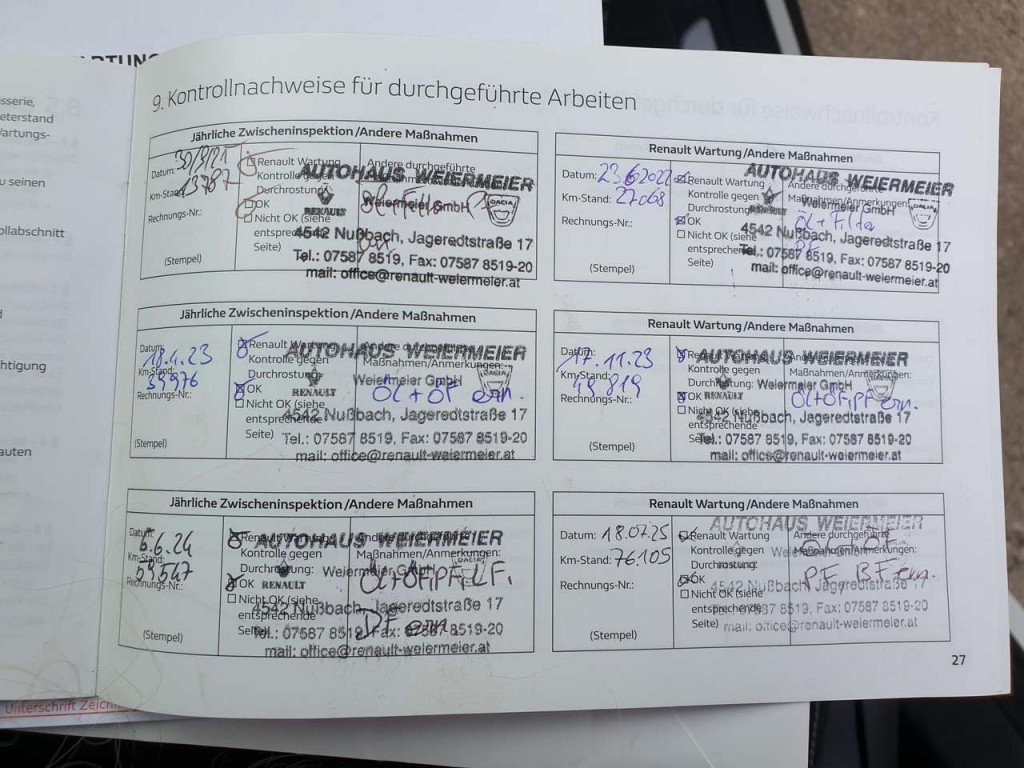 ARTUNG
sserie,
eterstand
Vartungs-
u seinen
ollabschnitt
d
htigung
auten
Unterschrift Zeich
9. Kontrollnachweise für durchgeführte Arbeiten
Jährliche Zwischeninspektion/Andere Maßnahmen
Datum: 30/8/21
Km-Stand: 13787
Rechnungs-Nr.:
(Stempel)
Renault Wartung
Kontrolle gegen
Durchrostung:
OK
Nicht OK (siehe
entsprechende
Seite)
Andere durchgeführte
AUTOHAUS WEIERMEIER
Weiermeier GmbH
RENAULT
DACIA
4542 Nußbach, Jageredtstraße 17
Tel.: 07587 8519, Fax: 07587 8519-20
mail: office@renault-weiermeier.at
Renault Wartung/Andere Maßnahmen
Datum: 23.6.2022
Km-Stand: 27068
Rechnungs-Nr.:
(Stempel)
Renault Wartung
Kontrolle gegen
Durchrostung:
OK
Nicht OK (siehe
entsprechende
Seite)
Andere durchgeführte
Maßnahmen/Anmerkungen:
Öl + Filter
PF
AUTOHAUS WEIERMEIER
Weiermeier GmbH
RENAULT
DACIA
4542 Nußbach, Jageredtstraße 17
Tel.: 07587 8519, Fax: 07587 8519-20
mail: office@renault-weiermeier.at
Jährliche Zwischeninspektion/Andere Maßnahmen
Datum: 18.4.23
Km-Stand: 39976
Rechnungs-Nr.:
(Stempel)
Renault Wartung
Kontrolle gegen
Durchrostung:
OK
Nicht OK (siehe
entsprechende
Seite)
Andere durchgeführte
Maßnahmen/Anmerkungen:
Öl + ÖF ern.
AUTOHAUS WEIERMEIER
Weiermeier GmbH
RENAULT
DACIA
4542 Nußbach, Jageredtstraße 17
Tel.: 07587 8519, Fax: 07587 8519-20
mail: office@renault-weiermeier.at
Renault Wartung/Andere Maßnahmen
Datum: 17.11.23
Km-Stand: 48819
Rechnungs-Nr.:
(Stempel)
Renault Wartung
Kontrolle gegen
Durchrostung:
OK
Nicht OK (siehe
entsprechende
Seite)
Andere durchgeführte
Maßnahmen/Anmerkungen:
Öl+ÖF,PF ern.
AUTOHAUS WEIERMEIER
Weiermeier GmbH
RENAULT
DACIA
4542 Nußbach, Jageredtstraße 17
Tel.: 07587 8519, Fax: 07587 8519-20
mail: office@renault-weiermeier.at
Jährliche Zwischeninspektion/Andere Maßnahmen
Datum: 5.6.24
Km-Stand: 59547
Rechnungs-Nr.:
(Stempel)
Renault Wartung
Kontrolle gegen
Durchrostung:
OK
Nicht OK (siehe
entsprechende
Seite)
Andere durchgeführte
Maßnahmen/Anmerkungen:
Öl+ÖF,PF,LF,
DF ern
AUTOHAUS WEIERMEIER
Weiermeier GmbH
RENAULT
DACIA
4542 Nußbach, Jageredtstraße 17
Tel.: 07587 8519, Fax: 07587 8519-20
mail: office@renault-weiermeier.at
Renault Wartung/Andere Maßnahmen
Datum: 18.07.25
Km-Stand: 76.105
Rechnungs-Nr.:
(Stempel)
Renault Wartung
Kontrolle gegen
Durchrostung:
OK
Nicht OK (siehe
entsprechende
Seite)
Andere durchgeführte
Maßnahmen/Anmerkungen:
PF BF ern.
AUTOHAUS WEIERMEIER
4542 Nußbach, Jageredtstraße 17
Tel.: 07587 8519, Fax: 07587 8519-20
mail: office@renault-weiermeier.at
27